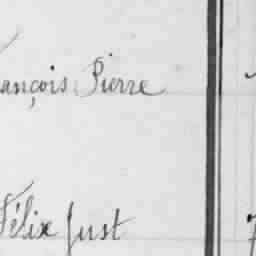 ançois Pierre
Félix Just